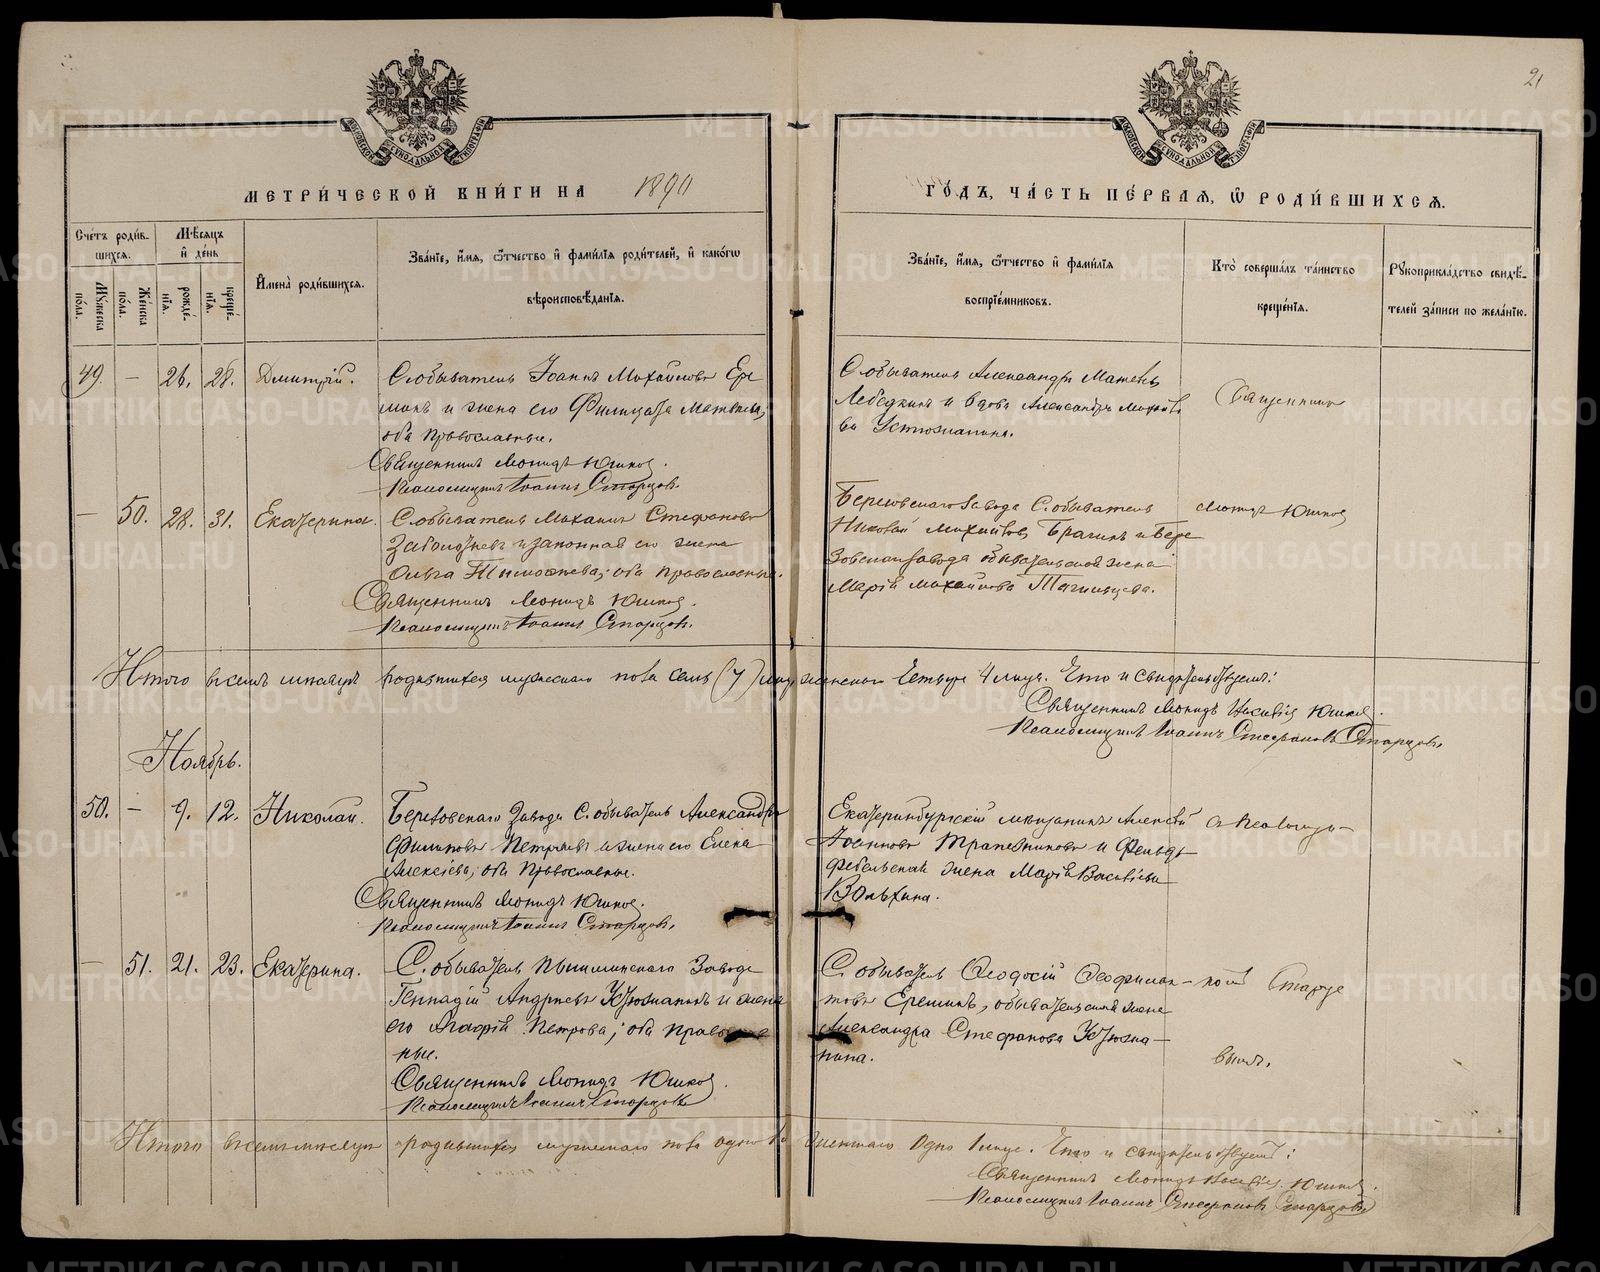 21
МОСКОВСКОЙ СѴНОДАЛЬНОЙ ТИПОГРАФІИ
МОСКОВСКОЙ СѴНОДАЛЬНОЙ ТИПОГРАФІИ
МЕТРИ́ЧЕСКОЙ КНИ́ГИ НА 1890
ГО́ДЪ, ЧА́СТЬ ПЕ́РВАѦ, Ѡ РОДИ́ВШИХСѦ.
Сче́тъ роди́в-
шихся.
Мѣ́сяцъ
и де́нь
Мꙋжеска по́ла.
Же́нска по́ла.
рожде́-
нїѧ.
креще́-
нїѧ.
Имена̀ роди́вшихся.
Зва́нїе, и́мя, ѻ҆́тчество и фами́лїя роди́телей, и како́гѡ
вѣроисповѣ́данїя.
Зва́нїе, и́мя, ѻ҆́тчество и фами́лїя
воспрїе́мниковъ.
Кто̀ соверша́лъ та́инство
креще́нїя.
Рꙋкоприкла́дство свидѣ́-
телей за́писи по жела́нїю.
49. — 26. 28. Дмитрій. С. обыватель Іоаннъ Михайловъ Ере
минъ и жена его Фелицата Матвѣева;
оба православные.
Священникъ Леонидъ Юшковъ.
Псаломщикъ Іоаннъ Старцовъ.
С. обыватель Александръ Матвѣевъ
Лебедкинъ и вдова Александра Михайло
ва Устюжанина.
Священникъ
— 50. 28. 31. Екатерина. С. обыватель Михаилъ Стефановъ
и законная его жена
Ольга оба православные.
Священникъ Леонидъ Юшковъ.
Псаломщикъ Іоаннъ Старцовъ.
Березовскаго завода С. обыватель
Николай Михайловъ Брагинъ и Бере
зовскаго завода обывательская жена
Марія Михайлова
Леонидъ Юшковъ
Итого въ семъ мѣсяцѣ родившихся мужескаго пола семь (7) женскаго четыре 4 лица. Что и свидѣтельствуемъ:
Священникъ Леонидъ Юшковъ.
Псаломщикъ Іоаннъ Стефановъ Старцовъ.
Ноябрь.
50. — 9. 12. Николай. Березовскаго завода С. обыватель Александръ
Филиповъ и жена его Елена
Алексіева; оба православные.
Священникъ Леонидъ Юшковъ.
Псаломщикъ Іоаннъ Старцовъ.
Екатеринбургскій мѣщанинъ Алексѣй
Іоанновъ Трапезниковъ и фельд-
фебельская жена Марія Васильева
Вольхина.
съ Псаломщи-
— 51. 21. 23. Екатерина. С. обыватель Пышминскаго завода
Геннадій Андреевъ Устюжанинъ и жена
его Агафія Петрова; оба православ
ные.
Священникъ Леонидъ Юшковъ.
Псаломщикъ Іоаннъ Старцовъ
С. обыватель Ѳеодосій Ѳеофилак-
товъ Ереминъ, обывательская жена
Александра Стефанова Устюжа-
нина.
комъ Старцо
вымъ.
Итого въ семъ мѣсяцѣ родившихся мужескаго пола одно женскаго одно 1 лице. Что и свидѣтельствуемъ:
Священникъ Леонидъ Юшковъ.
Псаломщикъ Іоаннъ Стефановъ Старцовъ
METRIKI.GASO-URAL.RU